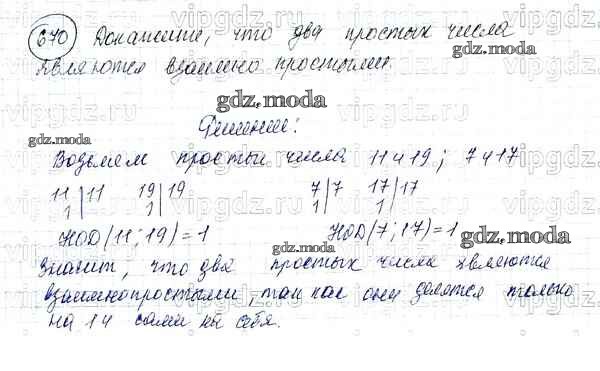 670 Докажите, что два простых числа
являются взаимно простыми.
Решение:
Возьмем простые числа 11 и 19; 7 и 17
11|11 19|19 7|7 17|17
1| 1| 1| 1|
НОД(11; 19)=1 НОД(7; 17)=1
Значит, что два простых числа являются
взаимнопростыми, так как они делятся только
на 1 и сами на себя.
gdz.moda
vipgdz.ru